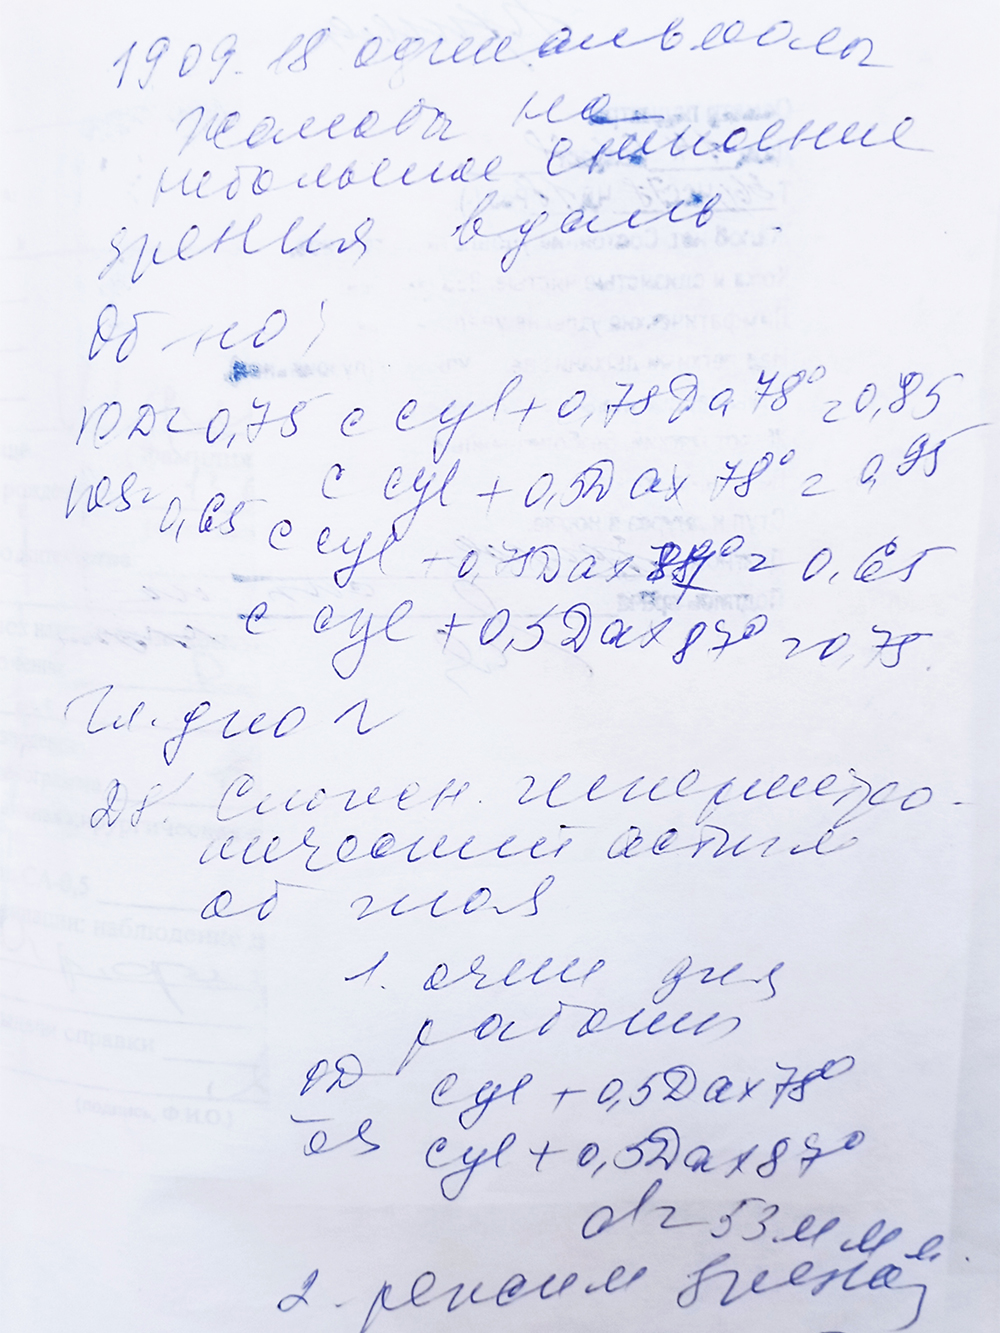 19 09. 18 офтальмолог
Жалобы на
небольшое снижение
зрения вдаль.
Об-но:
VOD=0,75 с cyl+0,75Dax78°=0,85
с cyl+0,5Dax78°=0,95
VOS=0,65 с cyl+0,75Dax 87°=0,65
с cyl+0,5Dax87°=0,75.
Гл. дно
DS: Сложн. гиперметро-
пический астигм
об глаз
1. очки для
работы
OD cyl+0,5Dax78°
OS cyl+0,5Dax87°
d=53мм
2. режим зрения